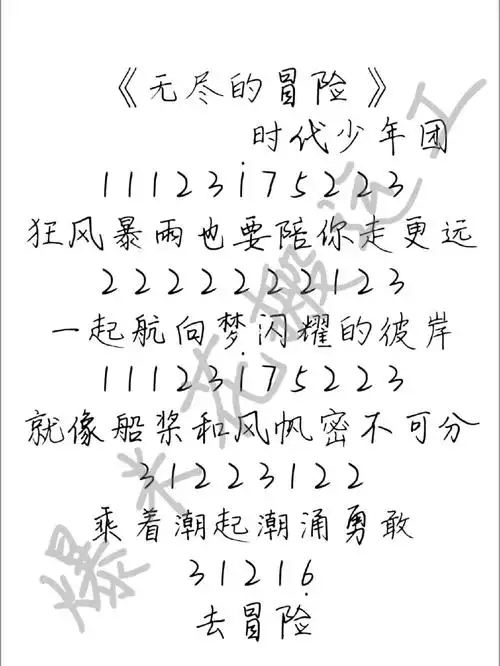 《无尽的冒险》
时代少年团
11123i75223
狂风暴雨也要陪你走更远
2222222123
一起航向梦闪耀的彼岸
11123i75223
就像船桨和风帆密不可分
31223122
乘着潮起潮涌勇敢
31216̣
去冒险
爆米花搬运工